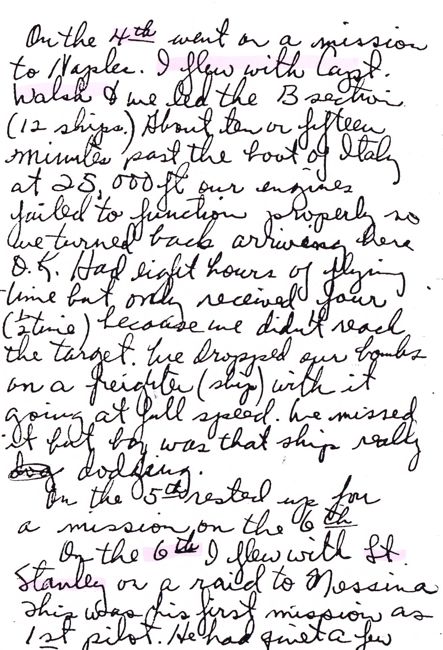 On the 4th went on a mission
to Naples. I flew with Capt.
Walsh & we led the B section
(12 ships.) About ten or fifteen
minutes past the boot of Italy
at 25,000 ft our engines
failed to function properly so
we turned back arriving here
O.K. Had eight hours of flying
time but only received four
(½ time) because we didn't reach
the target. We dropped our bombs
on a freighter (ship) with it
going at full speed. We missed
it but boy was that ship really
dodging.
On the 5th rested up for
a mission on the 6th
On the 6th I flew with Lt.
Stanley on a raid to Messina
This was his first mission as
1st pilot. He had quite a few